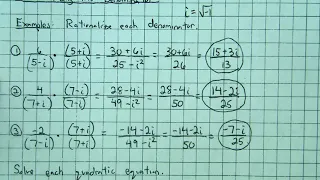 i = √-1
Examples: Rationalize each denominator.
① 6/(5-i) · (5+i)/(5+i) = 30+6i/25-i² = 30+6i/26 = 15+3i/13
② 4/(7+i) · (7-i)/(7-i) = 28-4i/49-i² = 28-4i/50 = 14-2i/25
③ -2/(7-i) · (7+i)/(7+i) = -14-2i/49-i² = -14-2i/50 = -7-i/25
Solve each quadratic equation.